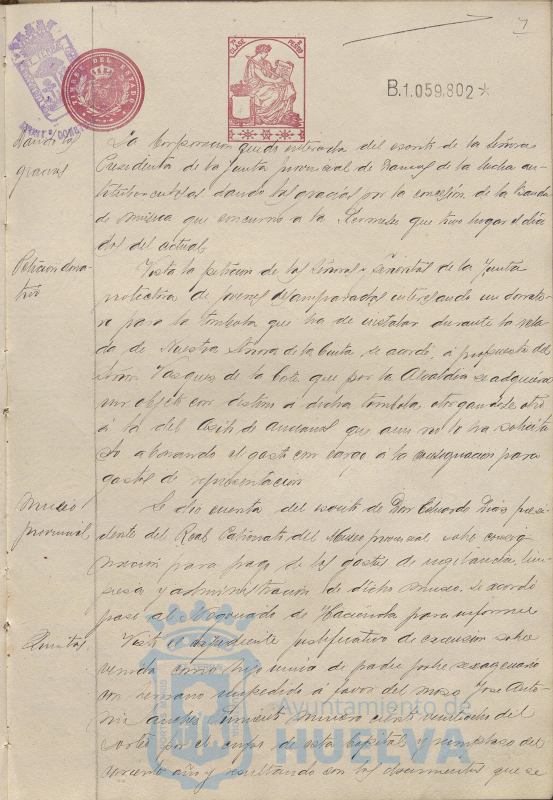 7
TIMBRE DEL ESTADO
B.1.059.802*
Dando las
gracias
La Corporacion quedó enterada del escrito de la Señora
Presidenta de la Junta provincial de Damas de la lucha an-
tituberculosa dando las gracias por la concesión de la Banda
de Música que concurrió a la Kermesse que tuvo lugar el dia
dos del actual
Peticion dona-
tivo
Vista la peticion de las Señoras y Señoritas de la Junta
protectora de jovenes desamparadas interesando un donati-
vo para la tombola que ha de instalar durante la vela-
da de Nuestra Señora de la Cinta, se acordó, á propuesta del
Señor Vazquez de la Corte que por la Alcaldía se adquiera
un objeto con destino á dicha tombola, otorgandole otro
á la del Asilo de ancianos que aun no lo ha solicita
do abonando el gasto con cargo á la consignacion para
gastos de representacion
Museo
provincial
Se dió cuenta del escrito de Don Eduardo Diaz presi-
dente del Real Patronato del Museo provincial, sobre consig-
nacion para pago de los gastos de vigilancia, lim-
pieza y administración de dicho museo. Se acordó
pase al Negociado de Hacienda para informe
Quintas
Visto el expediente justificativo de excepcion sobre
venida como hijo unico de padre pobre sexagenario
con hermano impedido á favor del mozo Jose Anto-
nio numero ciento veintiocho del
sorteo por el cupo de esta capital y reemplazo del
corriente año y resultando con los documentos que se
Ayuntamiento de
HUELVA